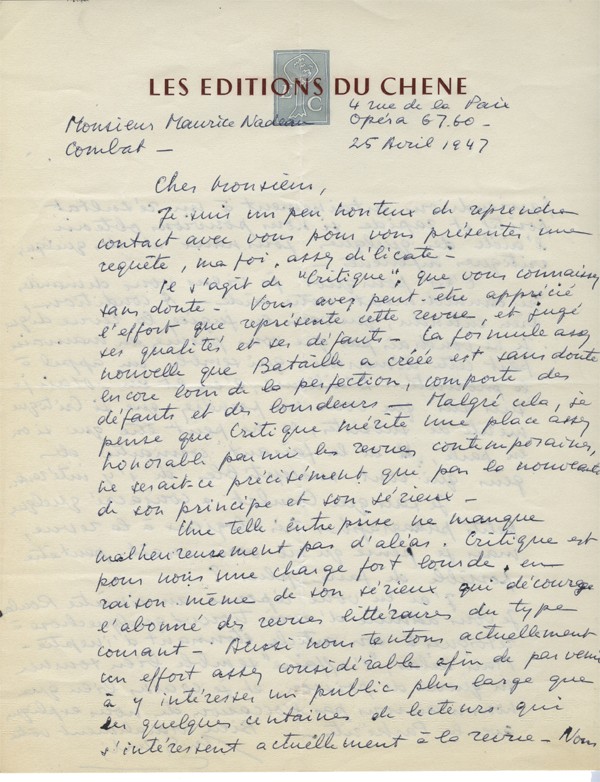 LES EDITIONS DU CHENE
LC
4 rue de la Paix
Monsieur Maurice Nadeau
Opéra 67.60 -
Combat -
25 Avril 1947
Cher Monsieur,
Je suis un peu honteux de reprendre
contact avec vous pour vous présenter une
requête, ma foi, assez délicate -
Il s'agit de "Critique", que vous connaissez
sans doute - Vous avez peut-être apprécié
l'effort que représente cette revue, et jugé
ses qualités et ses défauts - La formule assez
nouvelle que Bataille a créée est sans doute
encore loin de la perfection, comporte des
défauts et des lourdeurs - Malgré cela, je
pense que Critique mérite une place assez
honorable parmi les revues contemporaines,
ne serait-ce précisément que par la nouveauté
de son principe et son sérieux -
Une telle entreprise ne manque
malheureusement pas d'aléas. Critique est
pour nous une charge fort lourde, en
raison même de son sérieux qui décourage
l'abonné des revues littéraires du type
courant - Aussi nous tentons actuellement
un effort assez considérable afin de parvenir
à y intéresser un public plus large que
les quelques centaines de lecteurs qui
s'intéressent actuellement à la revue - Nous